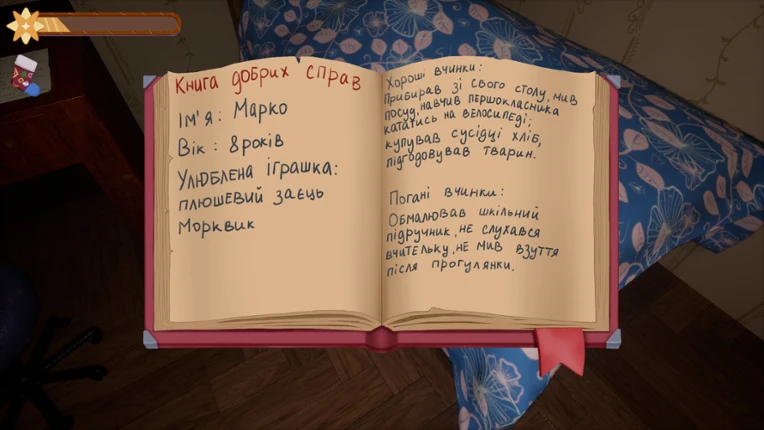 Книга добрих справ
Ім'я: Марко
Вік: 8 років
Улюблена іграшка:
плюшевий заєць
Морквик
Хороші вчинки:
Прибирав зі свого столу, мив
посуд, навчив першокласника
кататись на велосипеді;
купував сусідці хліб,
підгодовував тварин.
Погані вчинки:
Обмалював шкільний
підручник, не слухався
вчительку, не мив взуття
після прогулянки.